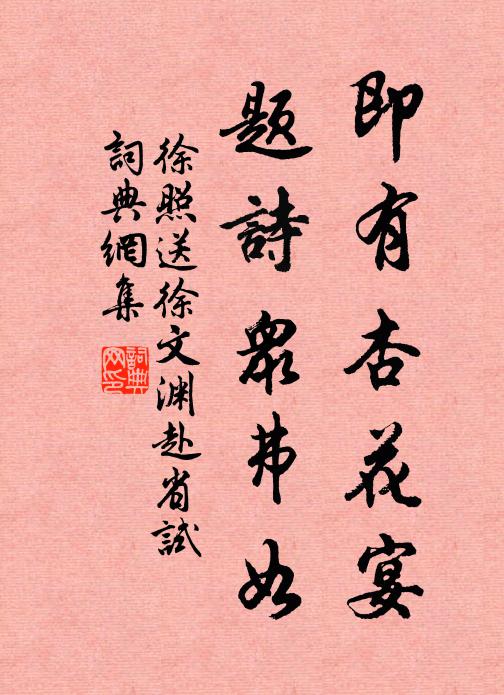 即有杏花宴
題詩眾弗如
徐照送徐文渊赴省試
詞典網集
詞典网印